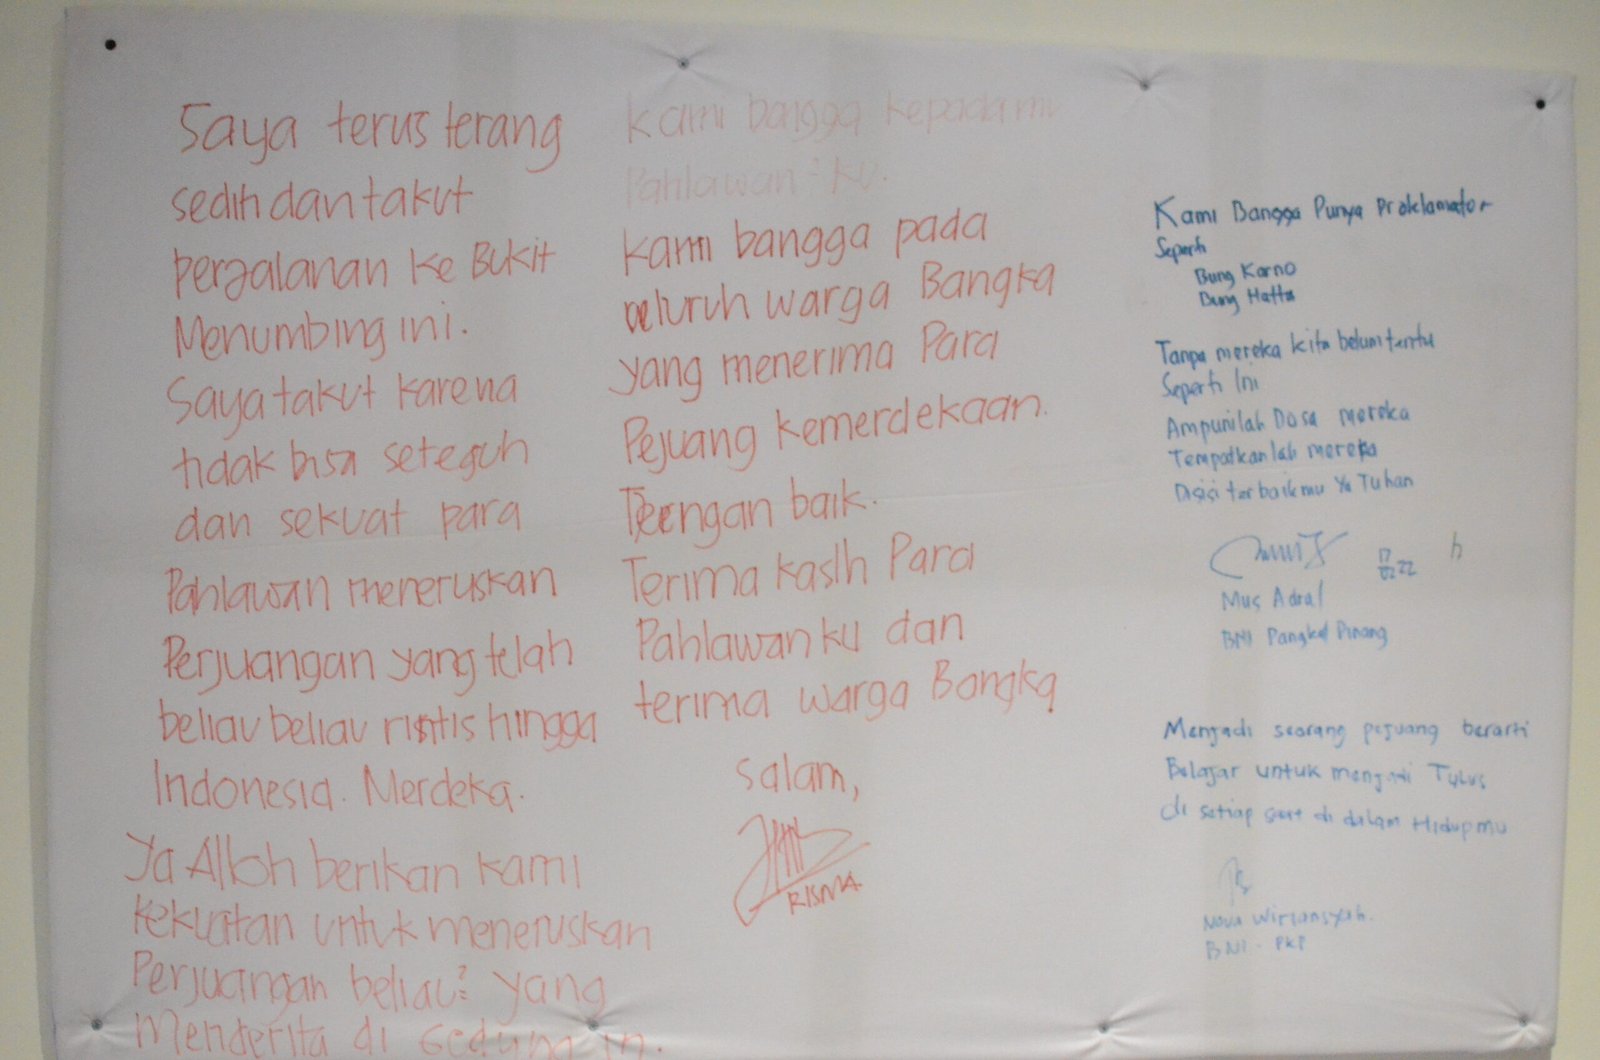 Saya terus terang
sedih dan takut
perjalanan ke Bukit
Menumbing ini.
Saya takut karena
tidak bisa seteguh
dan sekuat para
Pahlawan meneruskan
Perjuangan yang telah
beliau beliau rintis hingga
Indonesia. Merdeka.
Ya Alloh berikan kami
kekuatan untuk meneruskan
Perjuangan beliau² yang
Menderita di Gedung ini.
kami bangga kepadamu
Pahlawan²ku.
kami bangga pada
seluruh warga Bangka
yang menerima Para
Pejuang kemerdekaan.
Dengan baik.
Terima kasih Para
Pahlawanku dan
terima warga Bangka
Salam,
RISMA
Kami Bangga Punya Proklamator
Seperti
Bung Karno
Bung Hatta
Tanpa mereka kita belum tentu
Seperti Ini
Ampunilah Dosa mereka
Tempatkanlah mereka
Disisi terbaikmu Ya Tuhan
17/02 22
h
Mus Adral
BNI Pangkal Pinang
Menjadi seorang pejuang berarti
Belajar untuk menjadi Tulus
di setiap saat di dalam Hidupmu
Nova Wiriansyah.
BNI. PKP